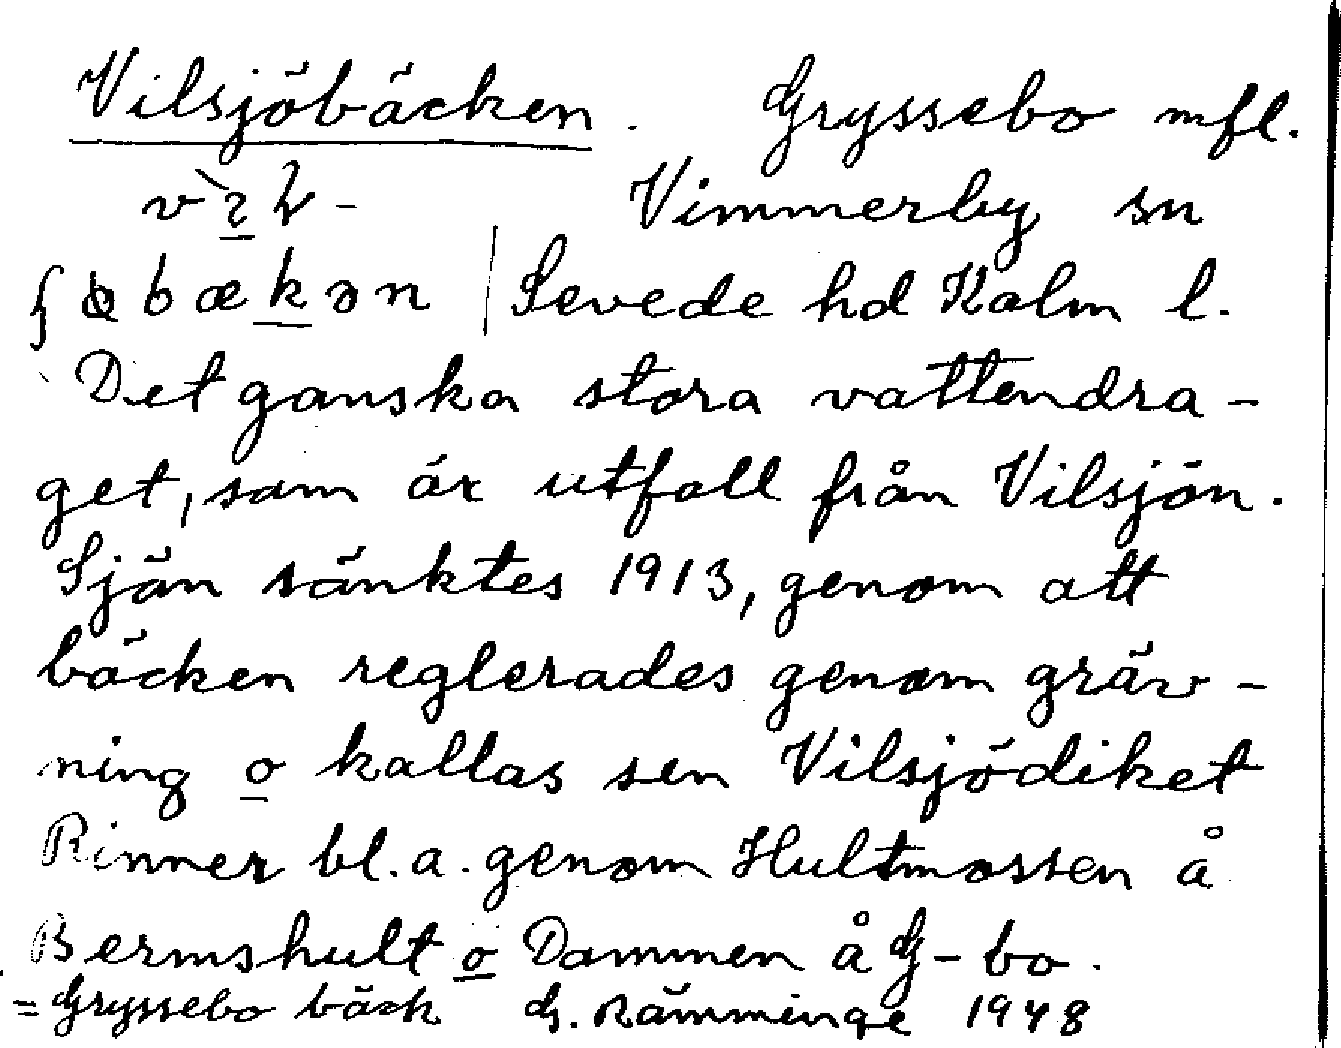 Vilsjöbäcken. Gryssebo mfl.
Vimmerby sn
bækən | Sevede hd Kalm l.
Det ganska stora vattendra-
get, som är utfall från Vilsjön.
Sjön sänktes 1913, genom att
bäcken reglerades genom gräv-
ning o kallas sen Vilsjödiket
Rinner bl.a. genom Hultmossen å
Bermshult o Dammen å G-bo.
= Gryssebo bäck G. Rämminge 1948